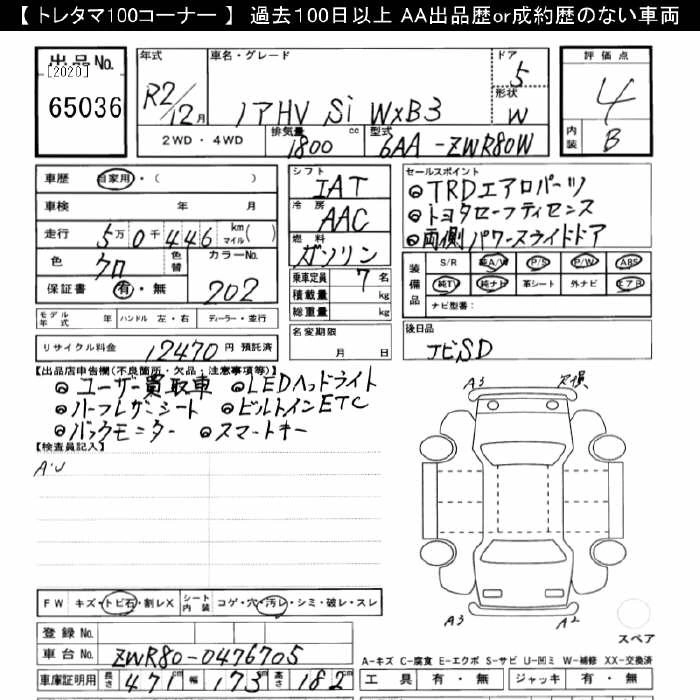 【 トレタマ100コーナー 】 過去100日以上 AA出品歴or成約歴のない車両
出品No.
[2020]
65036
年式
R2/12月
車名・グレード
ノアHV Si W×B3
ドア
5
形状
W
評価点
4
内装
B
2WD ・ 4WD
排気量
1800 cc
型式
6AA-ZWR80W
車歴 自家用・( )
車検 年 月
走行 5万0千446 km マイル( )
色 クロ 色替
カラーNo.
202
保証書 有・無
シフト
IAT
冷房
AAC
燃料
ガソリン
乗車定員 7 名
積載量 kg
総重量 kg
セールスポイント
◎TRDエアロパーツ
◎トヨタセーフティセンス
◎両側パワースライドドア
装備品
S/R 純A/W P/S P/W ABS
純TV 純ナビ 革シート 外ナビ エアB
ナビ型番:
モデル年式 年 ハンドル 左・右 ディーラー・並行
リサイクル料金 12470 円 預託済
名変期限
月 日
後日品
ナビSD
【出品店申告欄(不良箇所・欠品・注意事項等)】
◎ユーザー買取車 ◎LEDヘッドライト
◎ハーフレザーシート ◎ビルトインETC
◎バックモニター ◎スマートキー
【検査員記入】
A・U
A3 欠損
A3 A2
スペア
FW キズ・トビ石・割レX
シート内装 コゲ・穴・汚レ・シミ・破レ・スレ
登録No.
車台No. ZWR80-0476705
車庫証明用 長さ 471 cm 幅 173 cm 高さ 182 cm
A-キズ C-腐食 E-エクボ S-サビ U-凹ミ W-補修 XX-交換済
工具 有・無 ジャッキ 有・無